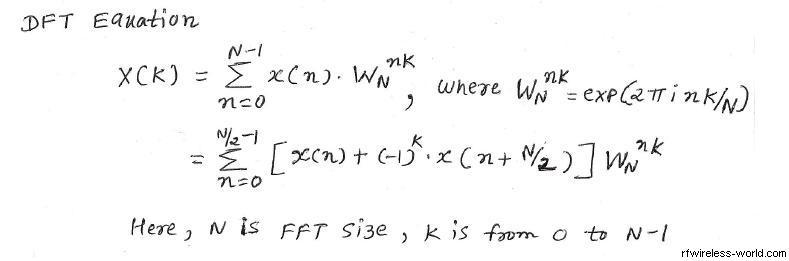 DFT Equation
X(K) = Σ_{n=0}^{N-1} x(n). W_N^{nK}, where W_N^{nK} = exp(2πi nK/N)
= Σ_{n=0}^{N/2-1} [x(n) + (-1)^K. x(n + N/2)] W_N^{nK}
Here, N is FFT Size, K is from 0 to N-1
rfwireless-world.com